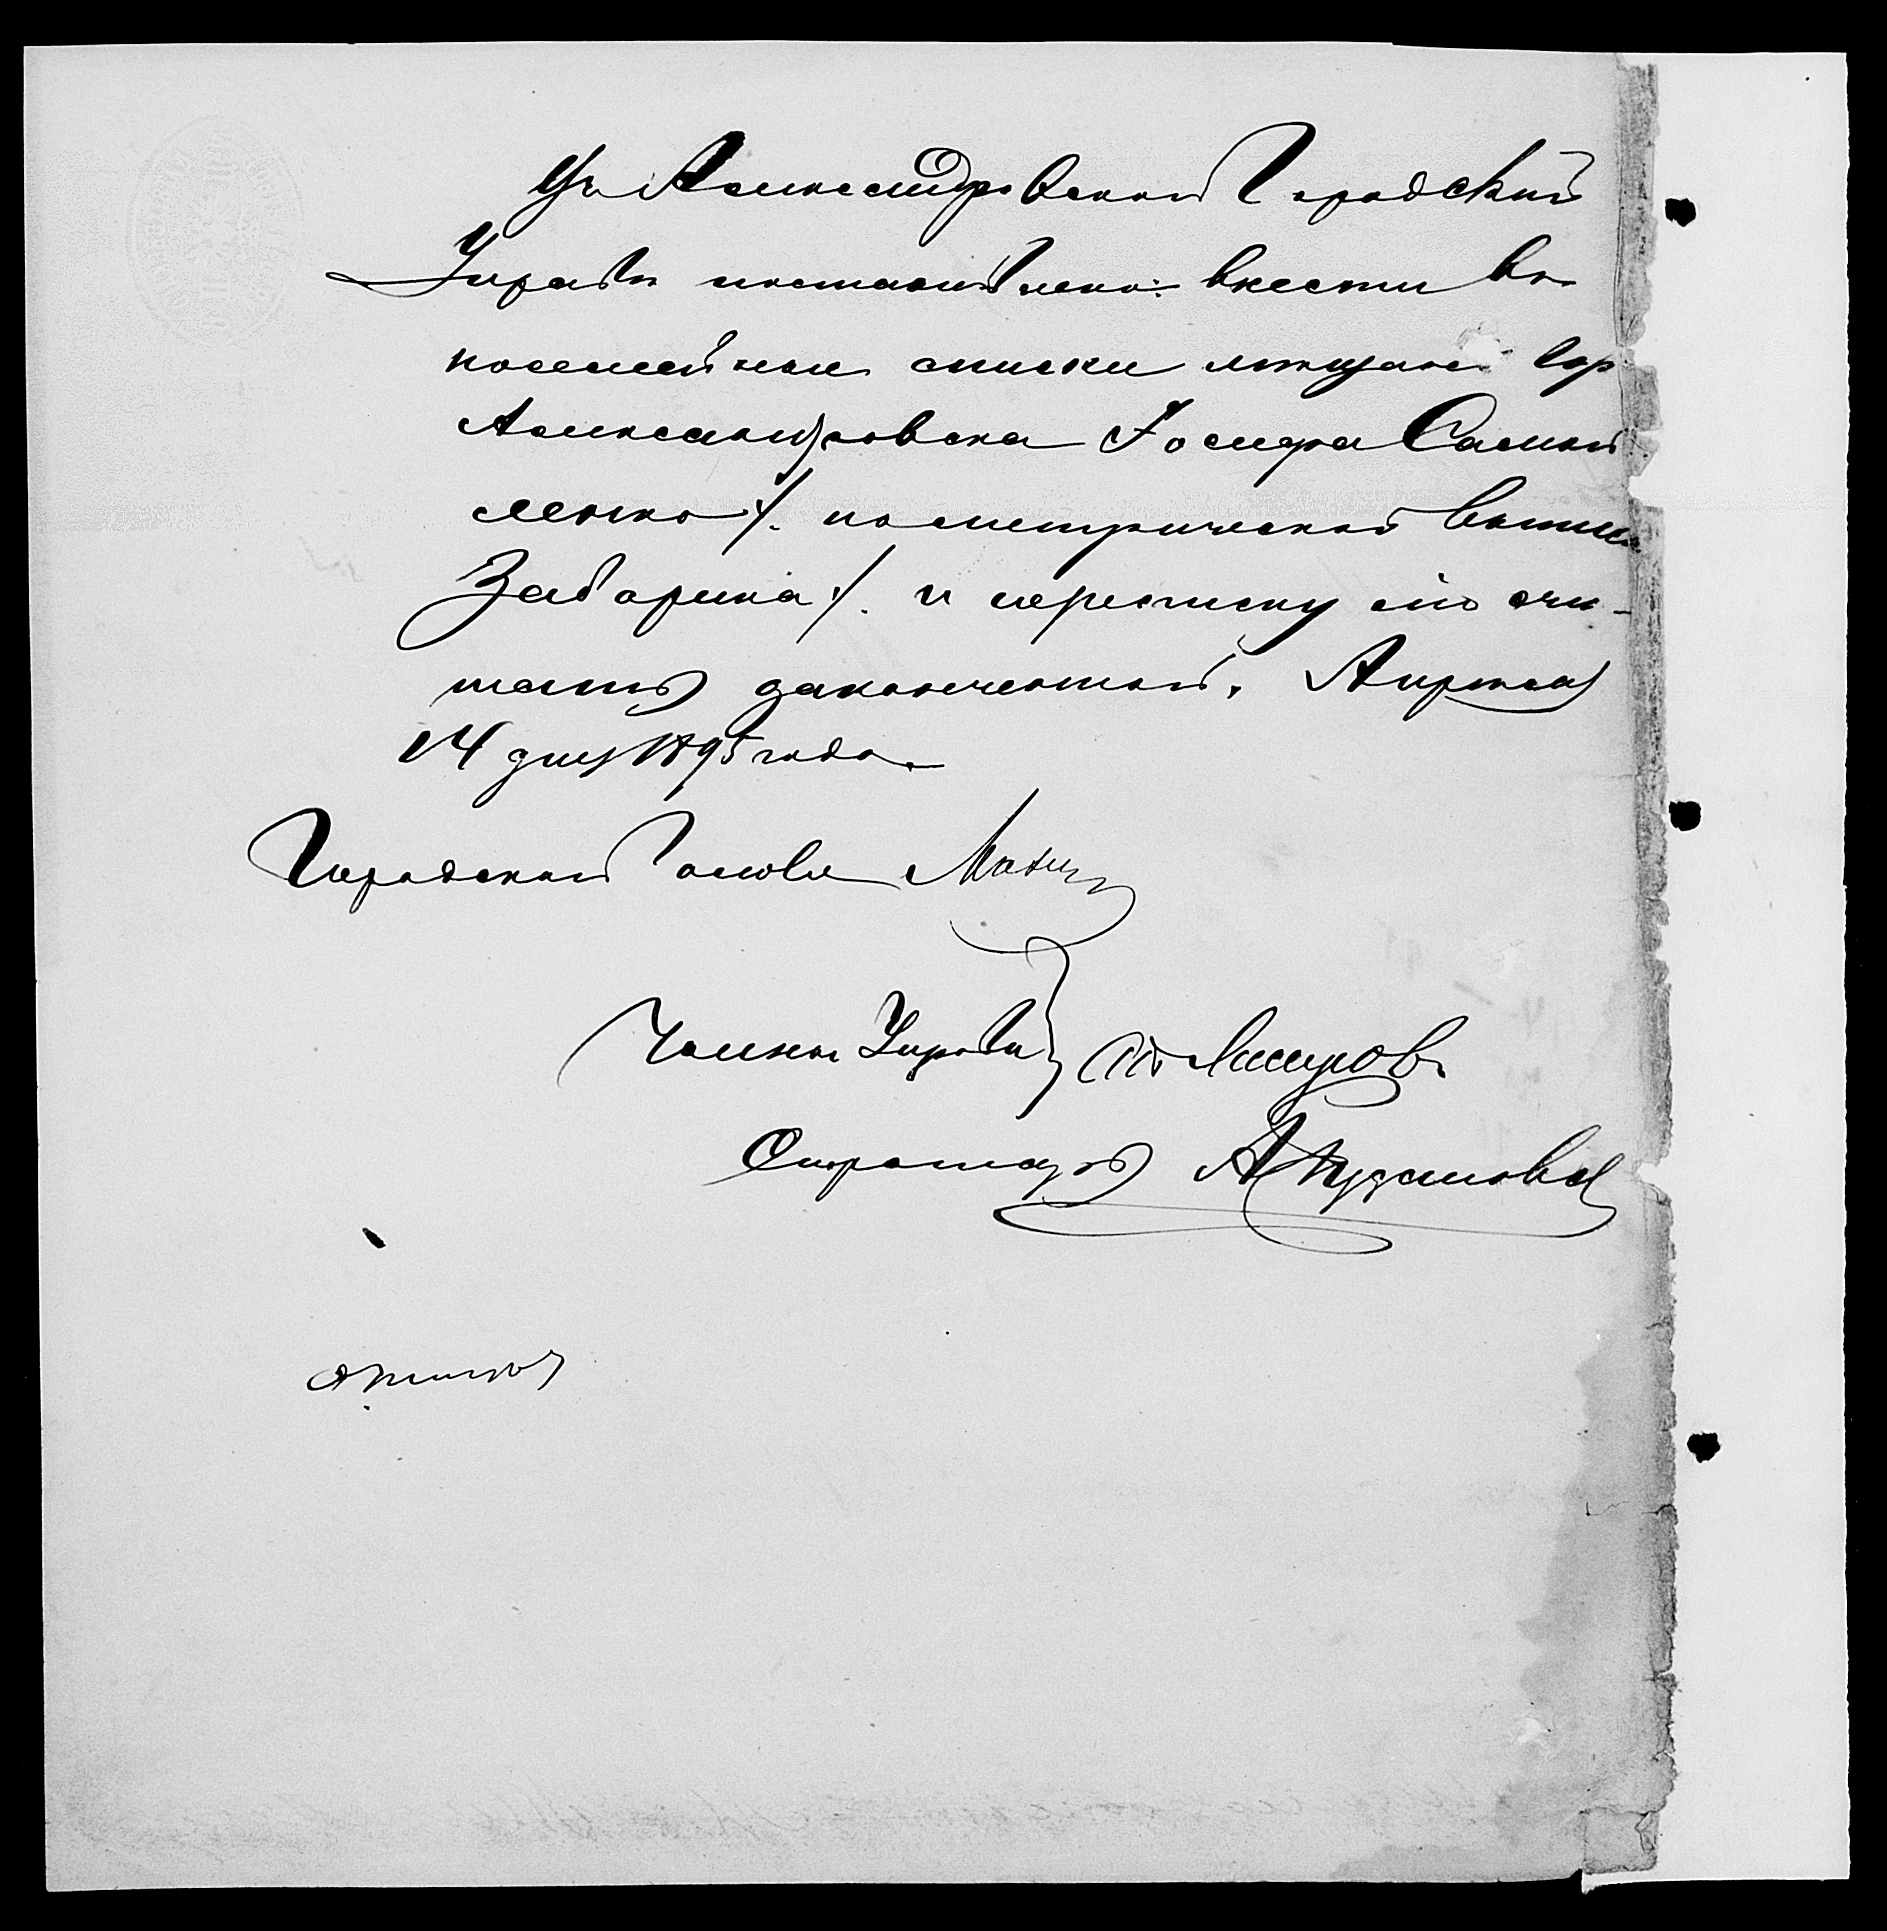 Въ Александровской Городской
Управѣ постановлено: внести въ
посемейные списки мѣщанъ гор.
Александровска Іосифа Самой
ленко /: по метрической выпис
Забарина :/. и переписку сію счи-
тать законченной. Апрѣля
14 дня 1895 года.
Городской Голова
Члены Управы
Секретарь